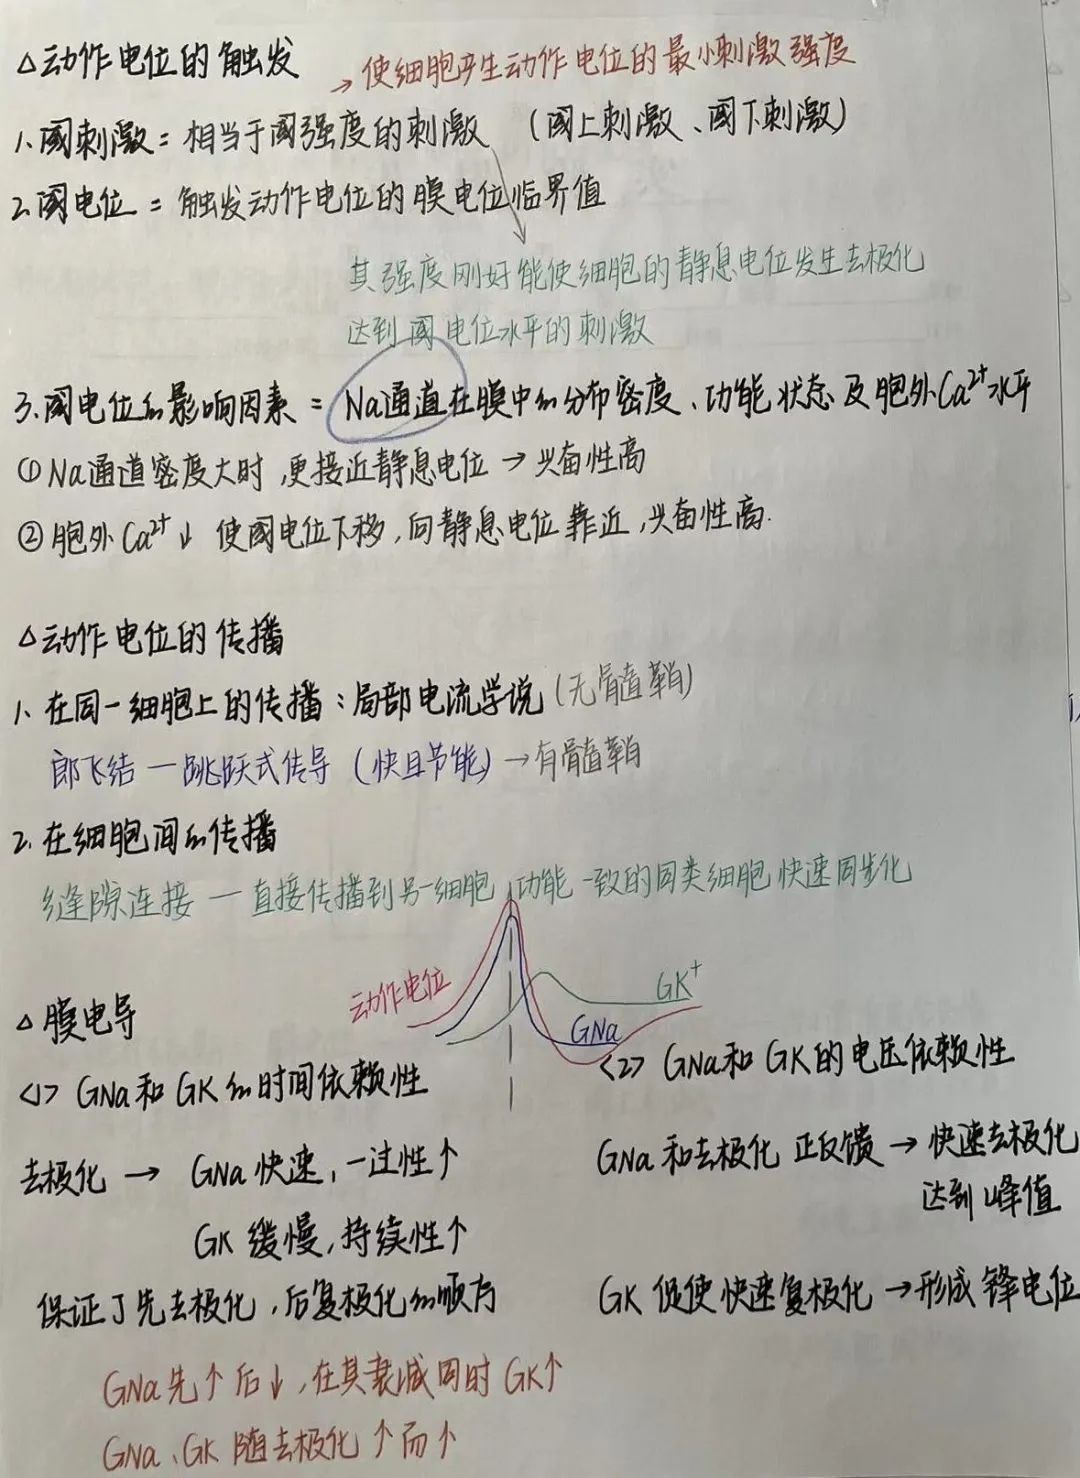 △动作电位的触发
→使细胞产生动作电位的最小刺激强度
1、阈刺激=相当于阈强度的刺激 (阈上刺激、阈下刺激)
2、阈电位=触发动作电位的膜电位临界值
其强度刚好能使细胞的静息电位发生去极化
达到阈电位水平的刺激
3.阈电位的影响因素=Na通道在膜中的分布密度、功能状态及胞外Ca²⁺水平
①Na通道密度大时,更接近静息电位→兴奋性高
②胞外Ca²⁺↓使阈电位下移,向静息电位靠近,兴奋性高.
△动作电位的传播
1、在同一细胞上的传播:局部电流学说(无髓鞘)
郎飞结—跳跃式传导(快且节能)→有髓鞘
2.在细胞间的传播
缝隙连接—直接传播到另一细胞 功能一致的同类细胞快速同步化
动作电位
GK⁺
GNa
△膜电导
<1> GNa和GK的时间依赖性
去极化→ GNa快速,一过性↑
GK缓慢,持续性↑
保证了先去极化,后复极化的顺序
GNa先↑后↓,在其衰减同时GK↑
GNa、GK随去极化↑而↑
<2> GNa和GK的电压依赖性
GNa和去极化 正反馈→快速去极化
达到峰值
GK促使快速复极化→形成锋电位